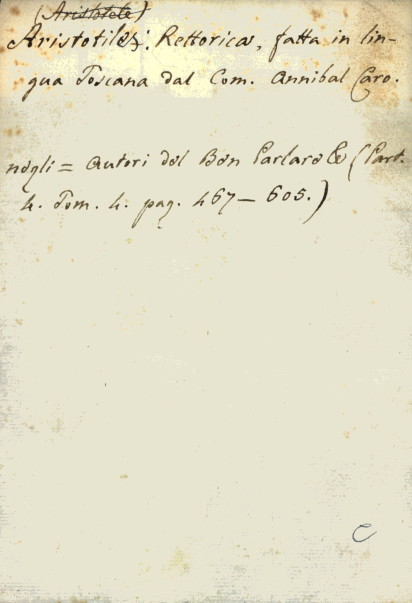 (Aristotele)
Aristotile: Rettorica, fatta in lin-
gua Toscana dal Com. Annibal Caro.
negli = Autori del Ben Parlare & (Part.
4. Tom. 4. pag. 467 - 605.)
C